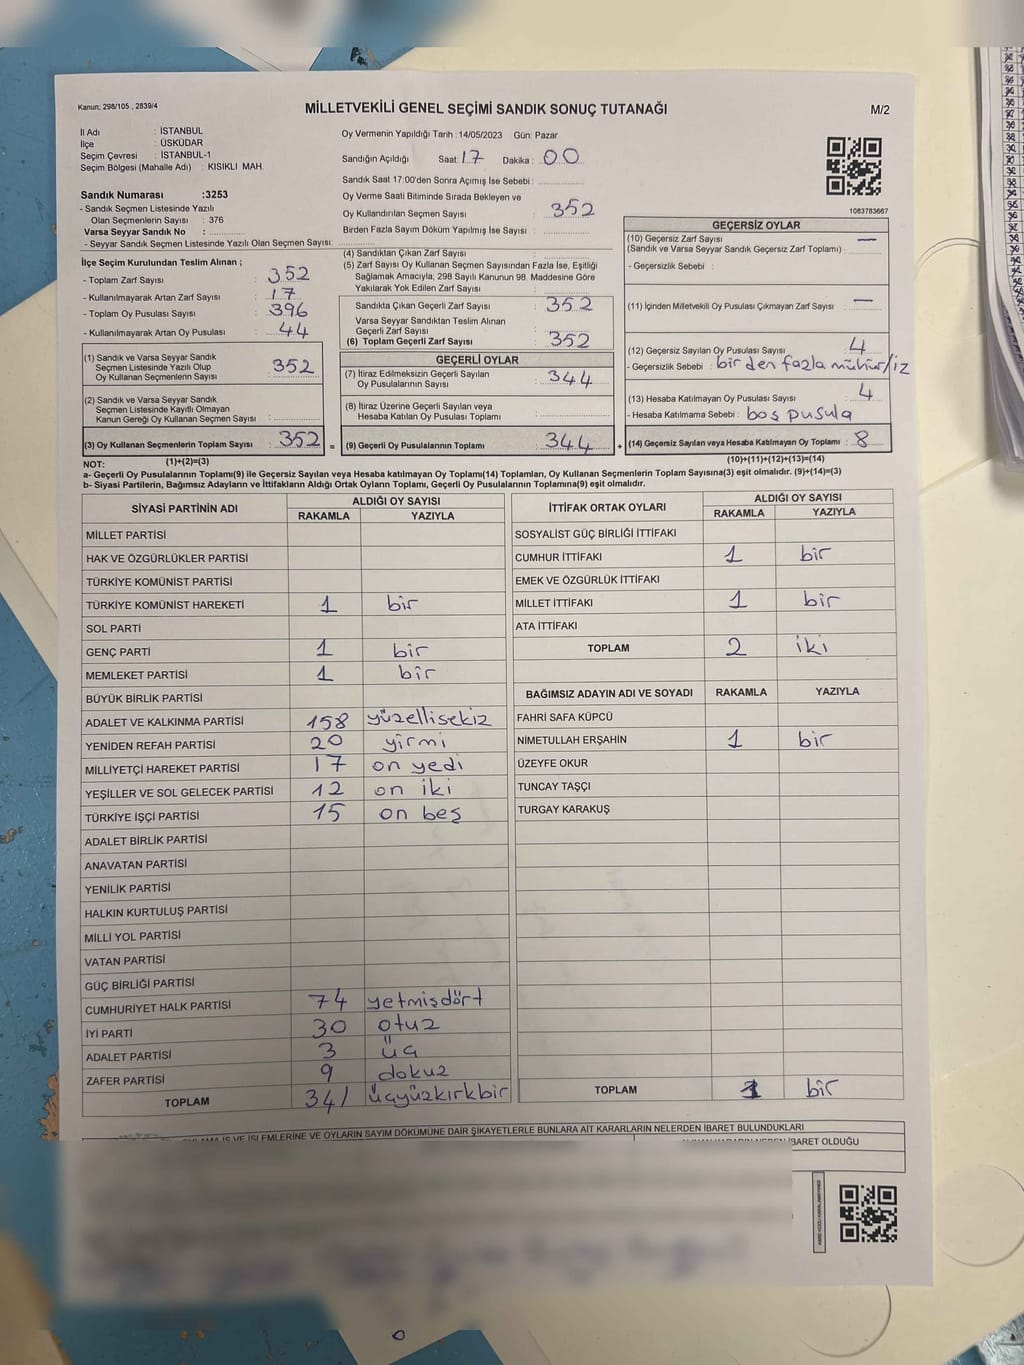 Kanun; 298/105 , 2839/4
MİLLETVEKİLİ GENEL SEÇİMİ SANDIK SONUÇ TUTANAĞI
M/2
İl Adı : İSTANBUL
İlçe : ÜSKÜDAR
Seçim Çevresi : İSTANBUL-1
Seçim Bölgesi (Mahalle Adı) : KISIKLI MAH.
Oy Vermenin Yapıldığı Tarih : 14/05/2023 Gün: Pazar
Sandığın Açıldığı Saat: 17 Dakika : 00
Sandık Saat 17:00'den Sonra Açımış İse Sebebi :
Oy Verme Saati Bitiminde Sırada Bekleyen ve
Oy Kullandırılan Seçmen Sayısı : 352
Birden Fazla Sayım Döküm Yapılmış İse Sayısı :
1083783667
Sandık Numarası :3253
- Sandık Seçmen Listesinde Yazılı
Olan Seçmenlerin Sayısı : 376
Varsa Seyyar Sandık No :
- Seyyar Sandık Seçmen Listesinde Yazılı Olan Seçmen Sayısı:
İlçe Seçim Kurulundan Teslim Alınan ;
- Toplam Zarf Sayısı : 352
- Kullanılmayarak Artan Zarf Sayısı : 17
- Toplam Oy Pusulası Sayısı : 396
- Kullanılmayarak Artan Oy Pusulası : 44
(1) Sandık ve Varsa Seyyar Sandık
Seçmen Listesinde Yazılı Olup
Oy Kullanan Seçmenlerin Sayısı : 352
(2) Sandık ve Varsa Seyyar Sandık
Seçmen Listesinde Kayıtlı Olmayan
Kanun Gereği Oy Kullanan Seçmen Sayısı :
(3) Oy Kullanan Seçmenlerin Toplam Sayısı : 352 =
(1)+(2)=(3)
(4) Sandıktan Çıkan Zarf Sayısı :
(5) Zarf Sayısı Oy Kullanan Seçmen Sayısından Fazla İse, Eşitliği
Sağlamak Amacıyla; 298 Sayılı Kanunun 98. Maddesine Göre
Yakılarak Yok Edilen Zarf Sayısı :
Sandıkta Çıkan Geçerli Zarf Sayısı : 352
Varsa Seyyar Sandıktan Teslim Alınan
Geçerli Zarf Sayısı :
(6) Toplam Geçerli Zarf Sayısı : 352
GEÇERLİ OYLAR
(7) İtiraz Edilmeksizin Geçerli Sayılan
Oy Pusulalarının Sayısı : 344
(8) İtiraz Üzerine Geçerli Sayılan veya
Hesaba Katılan Oy Pusulası Toplamı :
(9) Geçerli Oy Pusulalarının Toplamı : 344 +
GEÇERSİZ OYLAR
(10) Geçersiz Zarf Sayısı : —
(Sandık ve Varsa Seyyar Sandık Geçersiz Zarf Toplamı)
- Geçersizlik Sebebi :
(11) İçinden Milletvekili Oy Pusulası Çıkmayan Zarf Sayısı : —
(12) Geçersiz Sayılan Oy Pusulası Sayısı : 4
- Geçersizlik Sebebi : birden fazla mühür/iz
(13) Hesaba Katılmayan Oy Pusulası Sayısı : 4
- Hesaba Katılmama Sebebi : boş pusula
(14) Geçersiz Sayılan veya Hesaba Katılmayan Oy Toplamı : 8
(10)+(11)+(12)+(13)=(14)
NOT:
a- Geçerli Oy Pusulalarının Toplamı(9) ile Geçersiz Sayılan veya Hesaba katılmayan Oy Toplamı(14) Toplamları, Oy Kullanan Seçmenlerin Toplam Sayısına(3) eşit olmalıdır. (9)+(14)=(3)
b- Siyasi Partilerin, Bağımsız Adayların ve İttifakların Aldığı Ortak Oyların Toplamı, Geçerli Oy Pusulalarının Toplamına(9) eşit olmalıdır.
SİYASİ PARTİNİN ADI ALDIĞI OY SAYISI
RAKAMLA YAZIYLA
MİLLET PARTİSİ
HAK VE ÖZGÜRLÜKLER PARTİSİ
TÜRKİYE KOMÜNİST PARTİSİ
TÜRKİYE KOMÜNİST HAREKETİ 1 bir
SOL PARTİ
GENÇ PARTİ 1 bir
MEMLEKET PARTİSİ 1 bir
BÜYÜK BİRLİK PARTİSİ
ADALET VE KALKINMA PARTİSİ 158 yüzellisekiz
YENİDEN REFAH PARTİSİ 20 yirmi
MİLLİYETÇİ HAREKET PARTİSİ 17 on yedi
YEŞİLLER VE SOL GELECEK PARTİSİ 12 on iki
TÜRKİYE İŞÇİ PARTİSİ 15 on beş
ADALET BİRLİK PARTİSİ
ANAVATAN PARTİSİ
YENİLİK PARTİSİ
HALKIN KURTULUŞ PARTİSİ
MİLLİ YOL PARTİSİ
VATAN PARTİSİ
GÜÇ BİRLİĞİ PARTİSİ
CUMHURİYET HALK PARTİSİ 74 yetmişdört
İYİ PARTİ 30 otuz
ADALET PARTİSİ 3 üç
ZAFER PARTİSİ 9 dokuz
TOPLAM 341 üçyüzkırkbir
İTTİFAK ORTAK OYLARI ALDIĞI OY SAYISI
RAKAMLA YAZIYLA
SOSYALİST GÜÇ BİRLİĞİ İTTİFAKI
CUMHUR İTTİFAKI 1 bir
EMEK VE ÖZGÜRLÜK İTTİFAKI
MİLLET İTTİFAKI 1 bir
ATA İTTİFAKI
TOPLAM 2 iki
BAĞIMSIZ ADAYIN ADI VE SOYADI RAKAMLA YAZIYLA
FAHRİ SAFA KÜPCÜ
NİMETULLAH ERŞAHİN 1 bir
ÜZEYFE OKUR
TUNCAY TAŞÇI
TURGAY KARAKUŞ
TOPLAM 1 bir
İŞLEMLERİNE VE OYLARIN SAYIM DÖKÜMÜNE DAİR ŞİKAYETLERLE BUNLARA AİT KARARLARIN NELERDEN İBARET BULUNDUKLARI
İBARET OLDUĞU